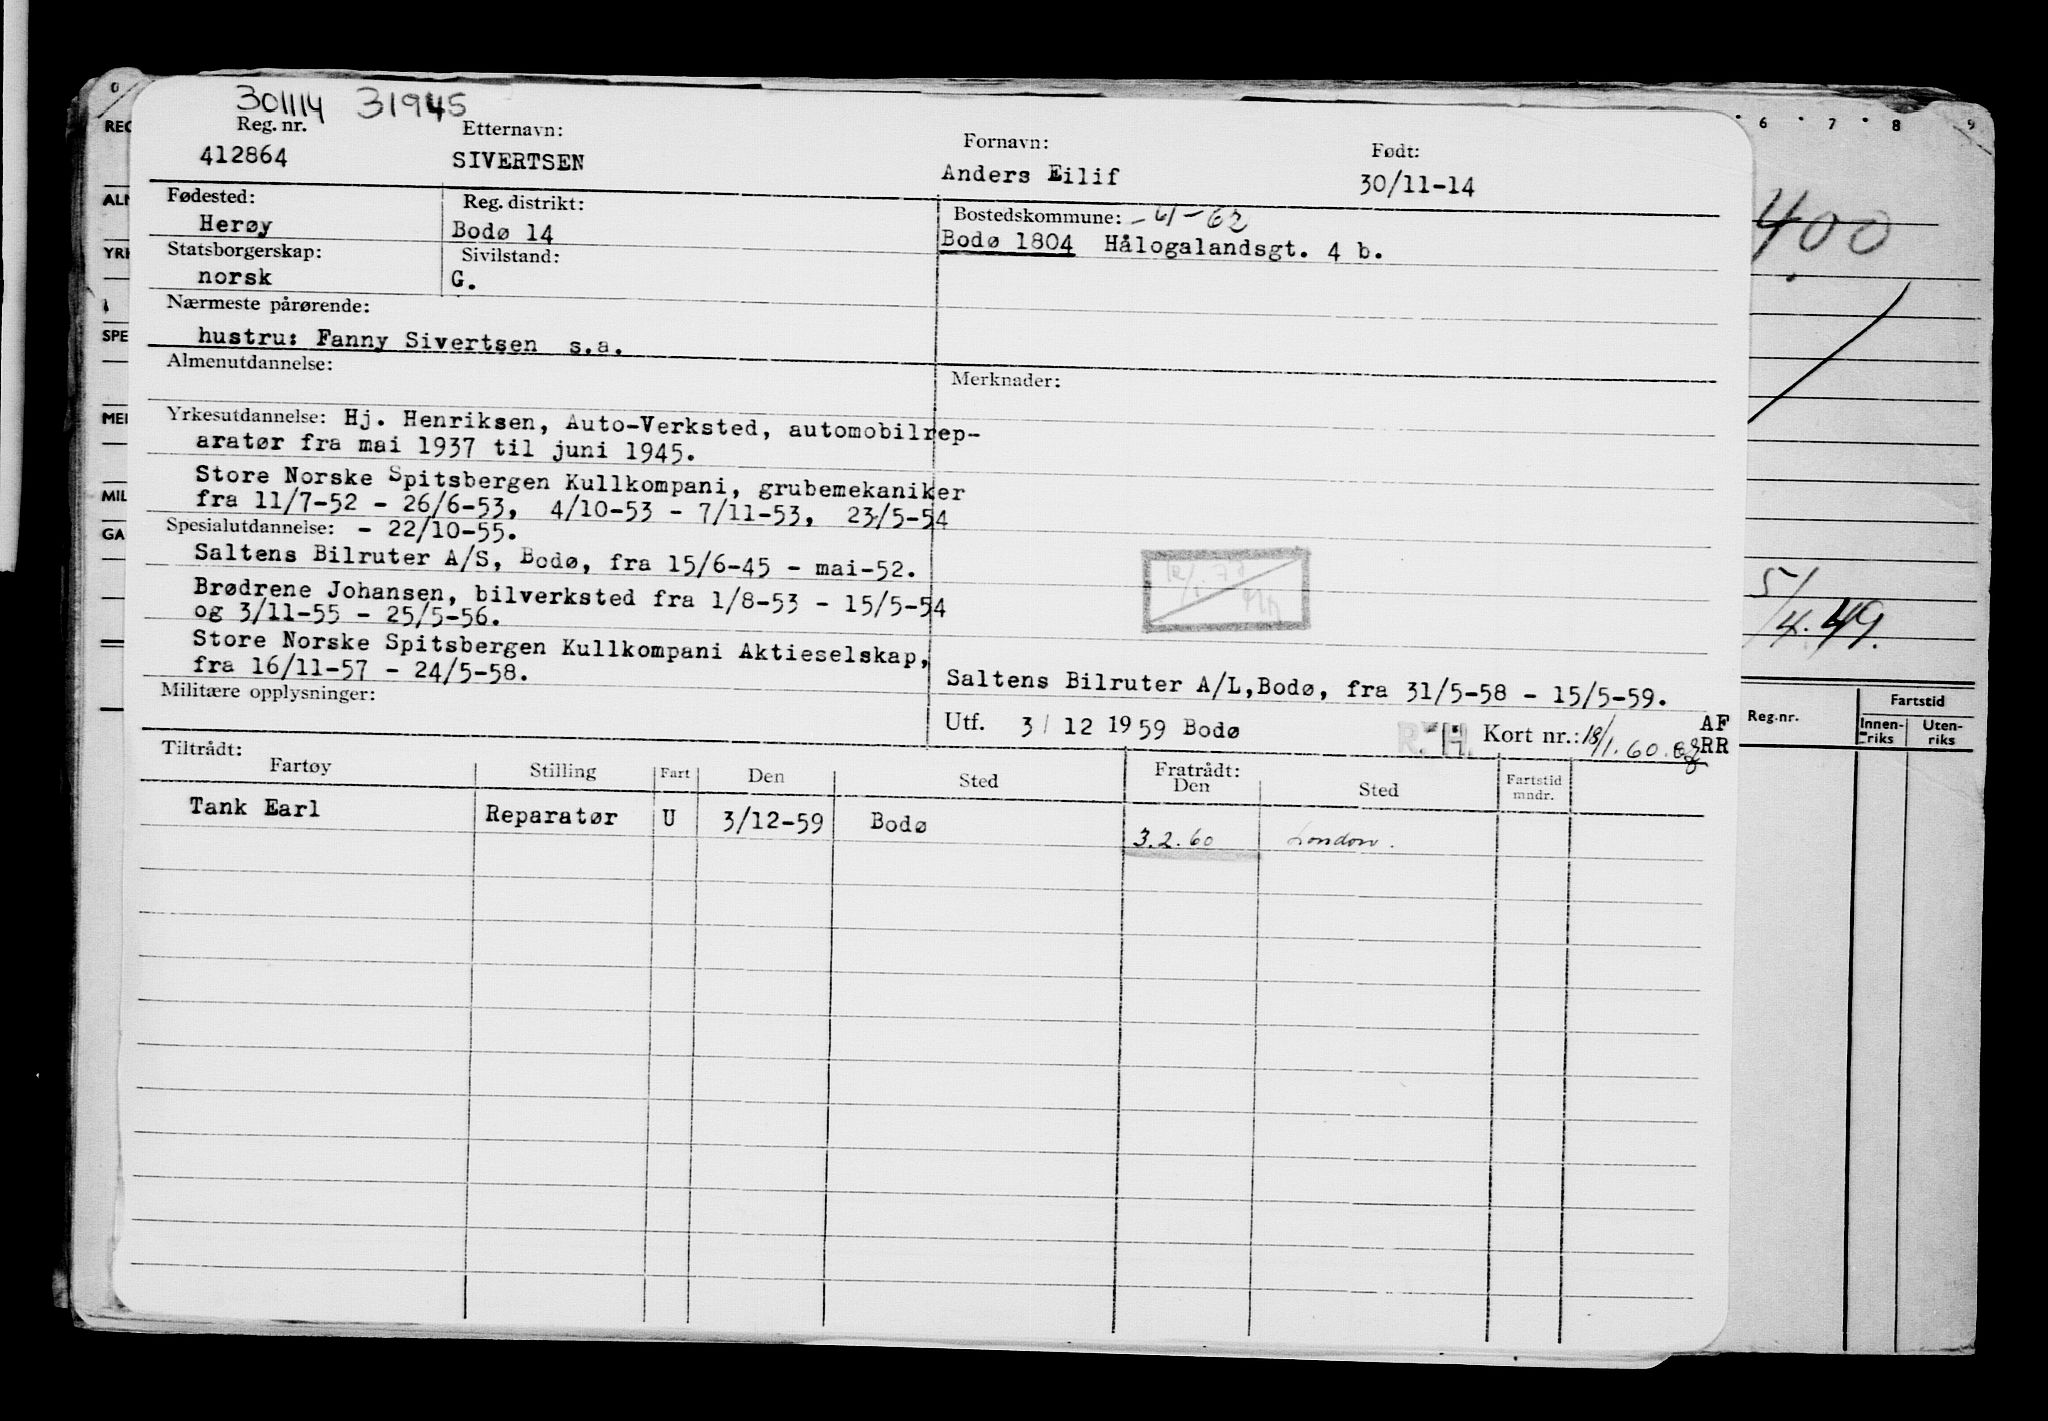 301114 31945
Reg. nr. Etternavn: Fornavn: Født:
412864 SIVERTSEN Anders Eilif 30/11-14
Fødested: Reg. distrikt: Bostedskommune: -4-62
Herøy Bodø 14 Bodø 1804 Hålogalandsgt. 4 b.
Statsborgerskap: Sivilstand:
norsk G.
Nærmeste pårørende:
hustru: Fanny Sivertsen s.a.
Almenutdannelse: Merknader:
Yrkesutdannelse: Hj. Henriksen, Auto-Verksted, automobilrep-
aratør fra mai 1937 til juni 1945.
Store Norske Spitsbergen Kullkompani, grubemekaniker
fra 11/7-52 - 26/6-53, 4/10-53 - 7/11-53, 23/5-54
Spesialutdannelse: - 22/10-55.
Saltens Bilruter A/S, Bodø, fra 15/6-45 - mai-52.
Brødrene Johansen, bilverksted fra 1/8-53 - 15/5-54
og 3/11-55 - 25/5-56.
Store Norske Spitsbergen Kullkompani Aktieselskap,
fra 16/11-57 - 24/5-58.
Saltens Bilruter A/L,Bodø, fra 31/5-58 - 15/5-59.
Militære opplysninger:
Utf. 3/12 1959 Bodø R.T.H. Kort nr.: 18/1.60. AF
RR
Tiltrådt: Fratrådt:
Fartøy Stilling Fart Den Sted Den Sted Fartstid
mndr.
Tank Earl Reparatør U 3/12-59 Bodø 3.2.60 London.
0 6 7 8 9
REG
ALM
YRK
SPE
MER
MIL
GA
400
5/4.49.
Reg.nr. Fartstid
Innen-
riks Uten-
riks